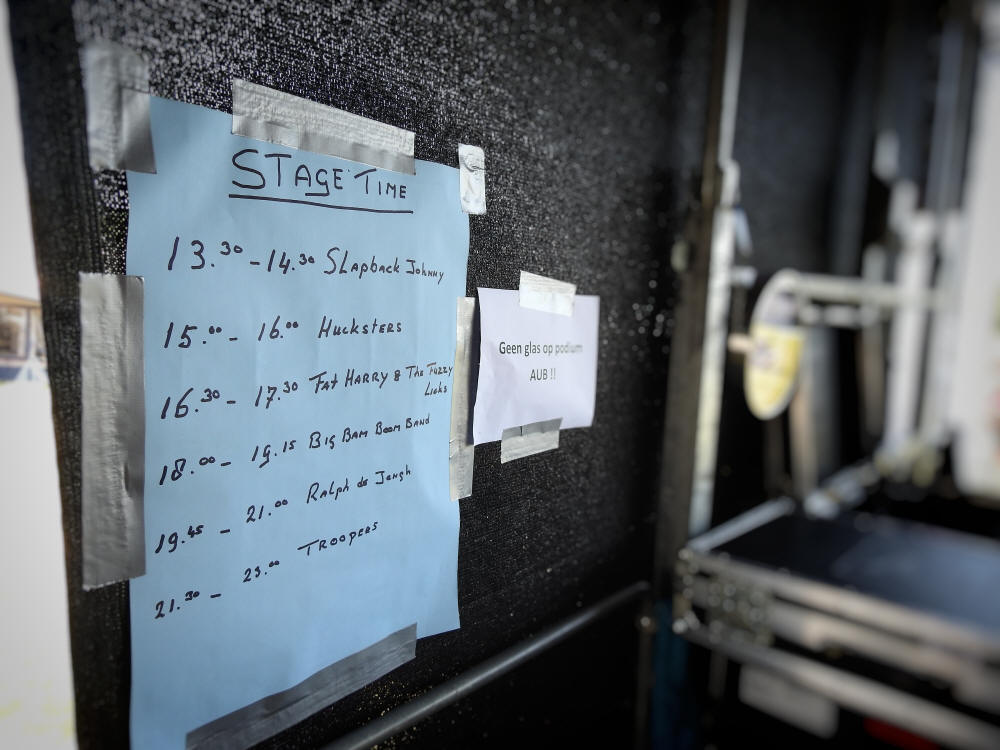 STAGE TIME
13.30 - 14.30 Slapback Johnny
15.00 - 16.00 Hucksters
16.30 - 17.30 Fat Harry & The Fuzzy
Licks
18.00 - 19.15 Big Bam Boom Band
19.45 - 21.00 Ralph de Jongh
21.30 - 23.00 TROOPERS
Geen glas op podium
AUB !!